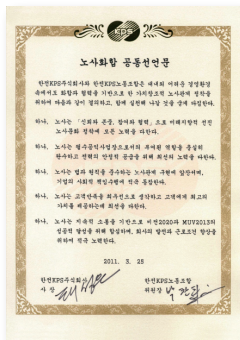 KPS
노사화합 공동선언문
한전KPS주식회사와 한전KPS노동조합은 대내외 어려운 경영환경
속에서도 화합과 협력을 기반으로 한 가치창조적 노사관계 정착을
위하여 다음과 같이 결의하고, 함께 실천해 나갈 것을 굳게 다짐한다.
하나, 노사는 「신뢰와 존중, 참여와 협력」으로 미래지향적 선진
노사문화 정착에 모든 노력을 다한다.
하나, 노사는 필수공익사업장으로서의 부여된 역할을 충실히
완수하고 전력의 안정적 공급을 위해 최선의 노력을 다한다.
하나, 노사는 법과 원칙을 준수하는 노사관계 구현에 앞장서며,
기업의 사회적 책임수행에 적극 동참한다.
하나, 노사는 고객만족을 최우선으로 생각하고 고객에게 최고의
가치를 제공하는데 최선을 다한다.
하나, 노사는 지속적 소통을 기반으로 비전2020과 MUV2013의
성공적 달성을 위해 합심하며, 회사의 발전과 근로조건 향상을
위하여 적극 노력한다.
2011. 3. 25
한전KPS주식회사
사 장
한전KPS노동조합
위원장